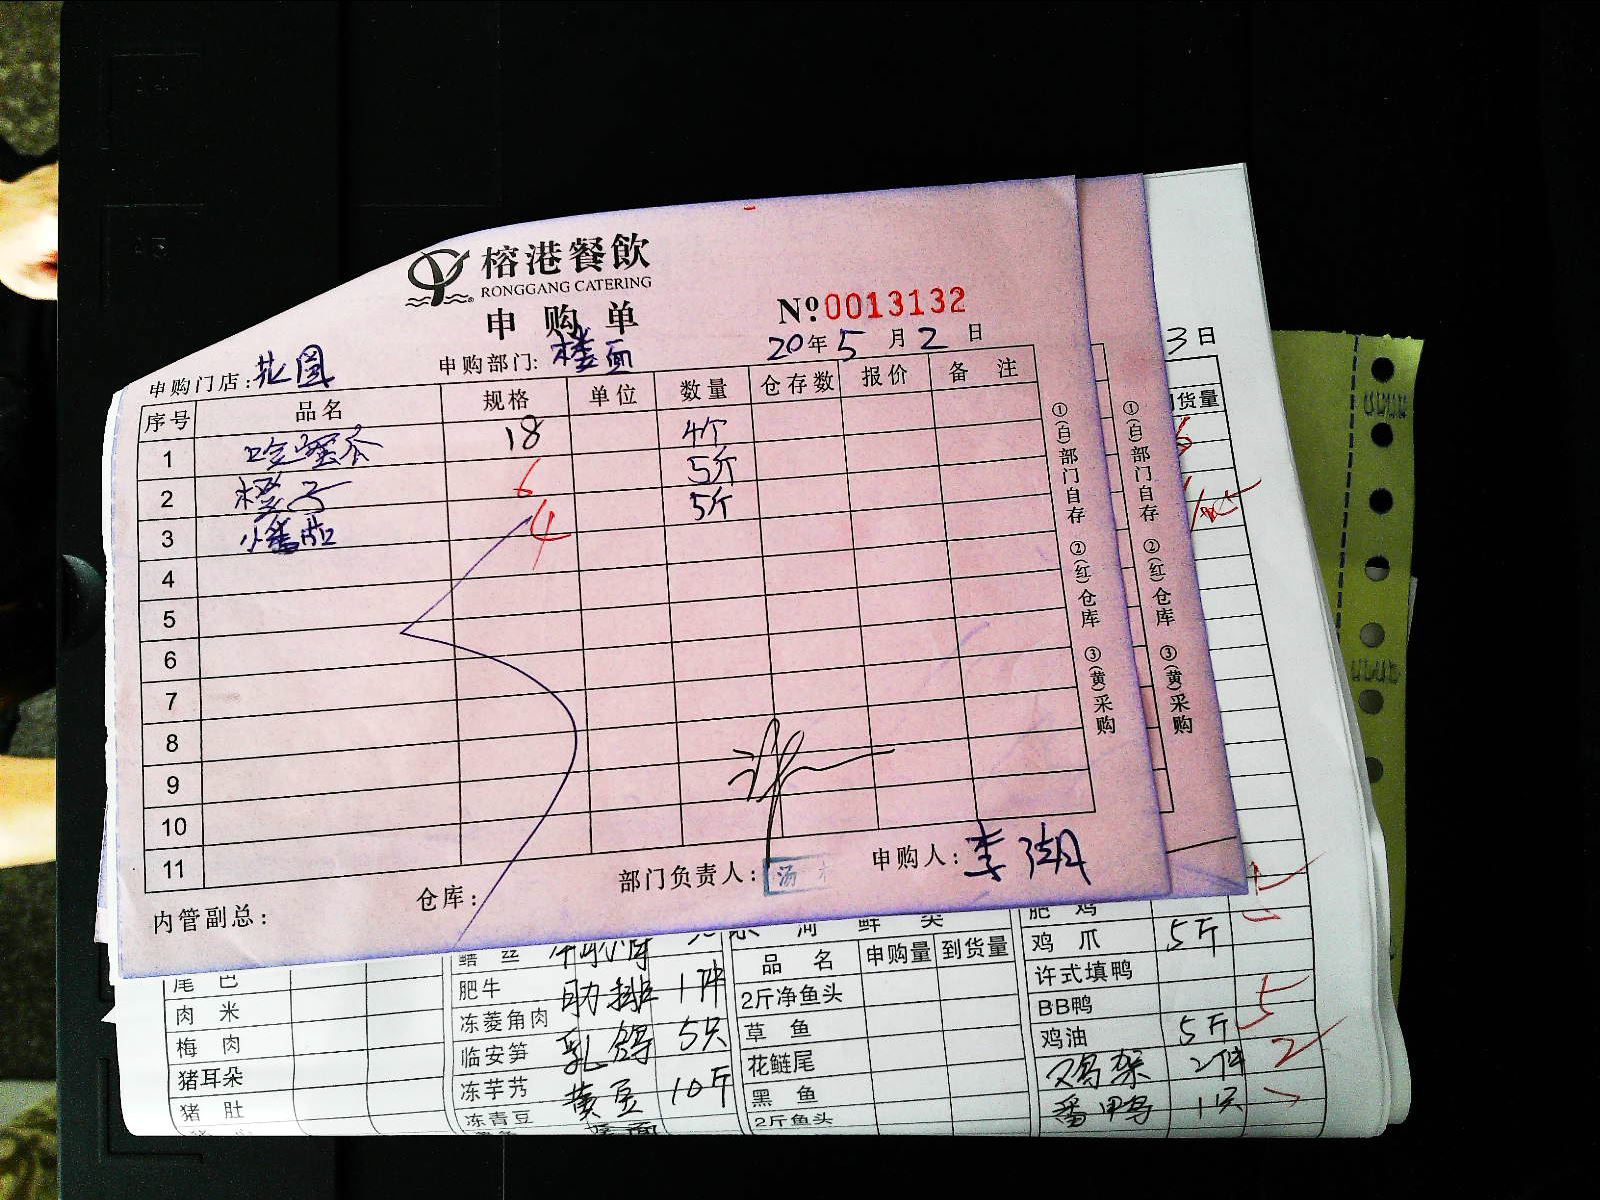 榕港餐飲
RONGGANG CATERING
申购单
№0013132
申购门店:
申购部门:楼面
20年5月2日
序号 品名 规格 单位 数量 仓存数 报价 备注
1 哈蜜瓜 18 4个
2 橙子 6 5斤
3 小番茄 4 5斤
4
5
6
7
8
9
10
11
①(白)部门自存 ②(红)仓库 ③(黄)采购
内管副总:
仓库:
部门负责人:汤
申购人:李湖
①(白)部门自存 ②(红)仓库 ③(黄)采购
3日
货量
尾巴
肉米
梅肉
猪耳朵
猪肚
鳝丝
肥牛 肋排 1件
冻菱角肉 乳鸽 5只
临安笋
冻芋艿 黄豆 10斤
冻青豆
河鲜类
品名 申购量 到货量
2斤净鱼头
草鱼
花鲢尾
黑鱼
2斤鱼头
肥鸡
鸡爪 5斤
许式填鸭
BB鸭 5
鸡油 5斤
鸡架 2件 2
番鸭 1只